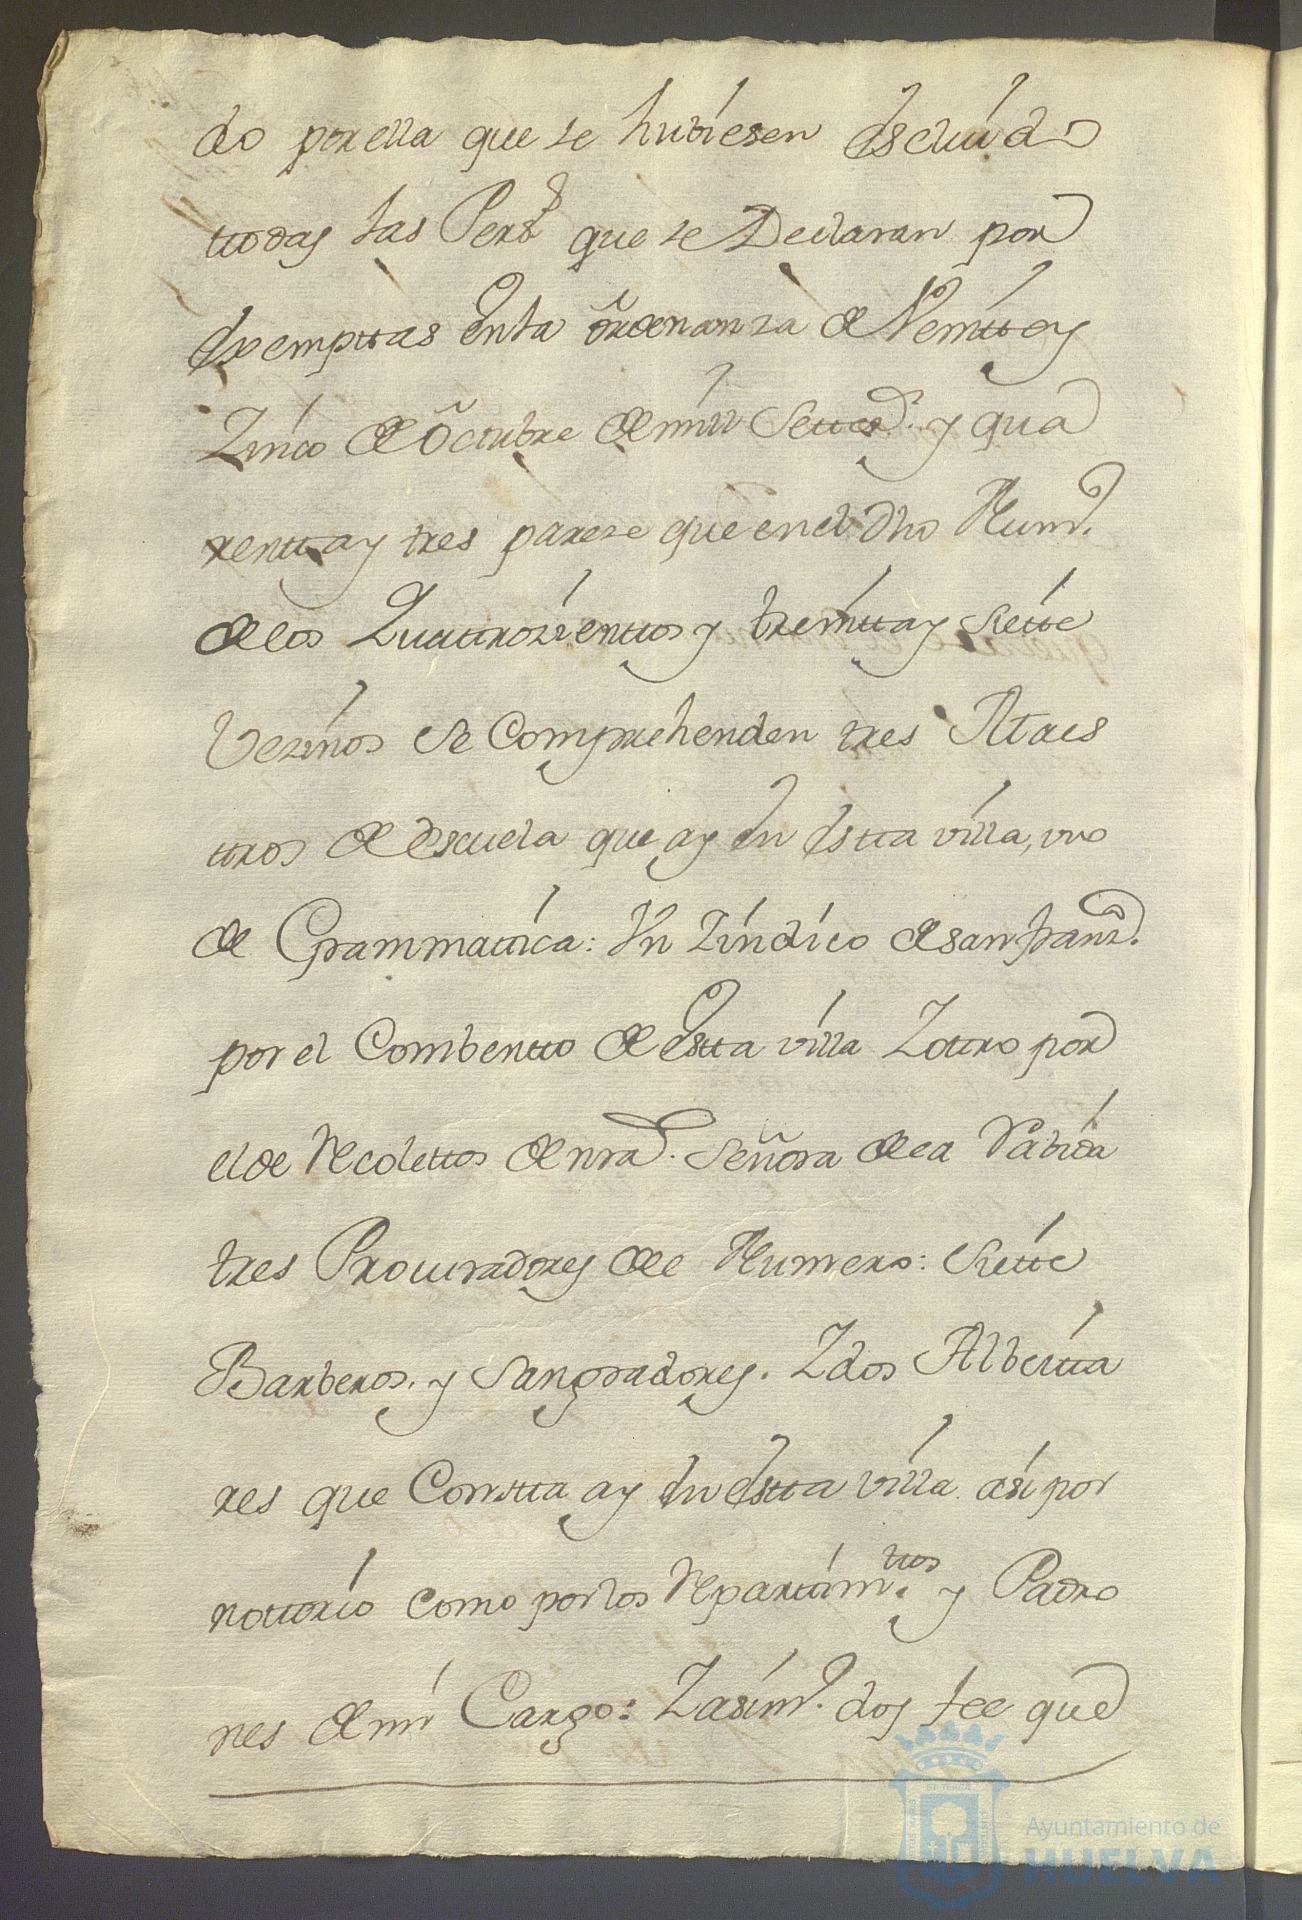 do por ella que se hubiesen escluido
ttodas las Pers.s que se Declaran por
exempttas en la ordenanza de Veintte y
Zinco de Octubre de mill settec.s y qua
rentta y tres pareze que en el dho Num.o
de los Quattrozienttos y treintta y siette
Vezinos se Comprehenden tres Maes
ttros de escuela que ay en estta villa, uno
de Grammattica: Un Zindico de san Franz.co
por el Combentto de estta villa Y ottro por
el de Recolettos de nra. Señora de la Rabida
tres Procuradores del Numero: siette
Barberos y sangradores. Y dos Albeitta
res que Constta ay en estta villa asi por
nottorio como por los Reparttim.ttos y Padro
nes de mi Cargo: Y asim.o doy fee que
Ayuntamiento de
HUELVA